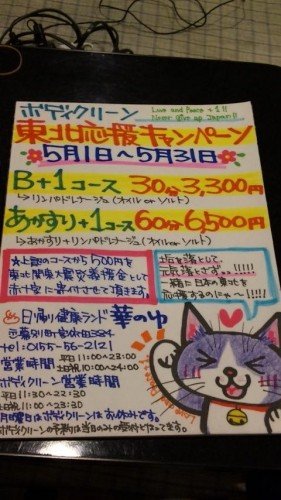 ボディクリーン
Love and Peace +1!!
Never give up Japan!!
東北応援キャンペーン
5月1日～5月31日
B+1コース 30分3,300円
↳リンパドレナージュ(オイルorソルト)
あかすり+1コース 60分6,500円
↳あかすり+リンパドレナージュ(オイルorソルト)
*上記のコースから500円を
東北関東大震災義援金として
赤十字に寄付させて頂きます。
垢を落として
元気落とさず。。!!!!!
一緒に日本の東北を
応援するのにゃ〜!!!!!
♨日帰り健康ランド 華のゆ
tel:0155-56-2121
営業時間 平日11:00～23:00
土日祝10:00～24:00
ボディクリーン営業時間
平日11:30～22:30
土日祝11:00～23:30
月曜日はボディクリーンはお休みです。
ボディクリーンの予約は当日のみの受付となってます。